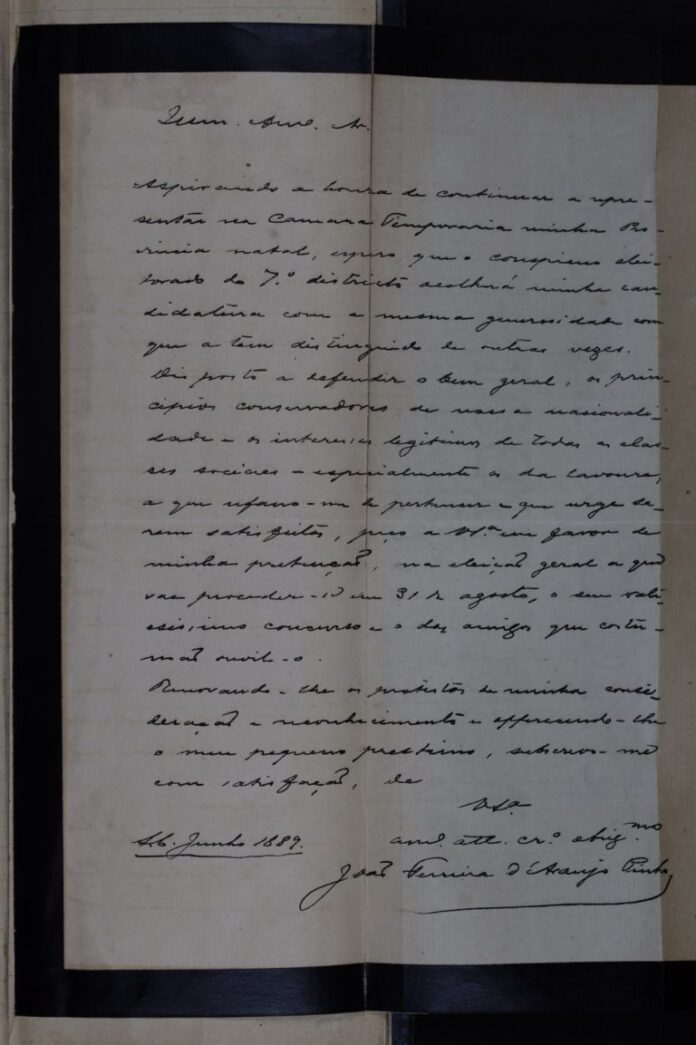 Illm. Amo. Sr.
Aspirando a honra de continuar a repre-
sentar na Camara Temporaria minha Pro-
vincia natal, espero que o conspicuo elei-
torado do 7.º districto acolherá minha can-
didatura com a mesma generosidade com
que a tem distinguido de outras vezes.
Disposto a defender o bem geral, os prin-
cipios conservadores de nossa nacionali-
dade e os interesses legitimos de todas as clas-
ses sociaes - especialmente os da lavoura,
a que ufano-me de pertencer e que urge se-
rem satisfeitos, peço a V.Sª em favor de
minha pretenção, na eleição geral a que
vae proceder-se em 31 de agosto, o seu vali-
osissimo concurso e o dos amigos que costu-
mão ouvil-o.
Renovando-lhe os protestos de minha consi-
deração e reconhecimento e offerecendo-lhe
o meu pequeno prestimo, subscrevo-me
com satisfação, de
V.Sª
amº. att. crº. obrig.mo
S.C. Junho 1889.
João Ferreira d'Araujo Pinho